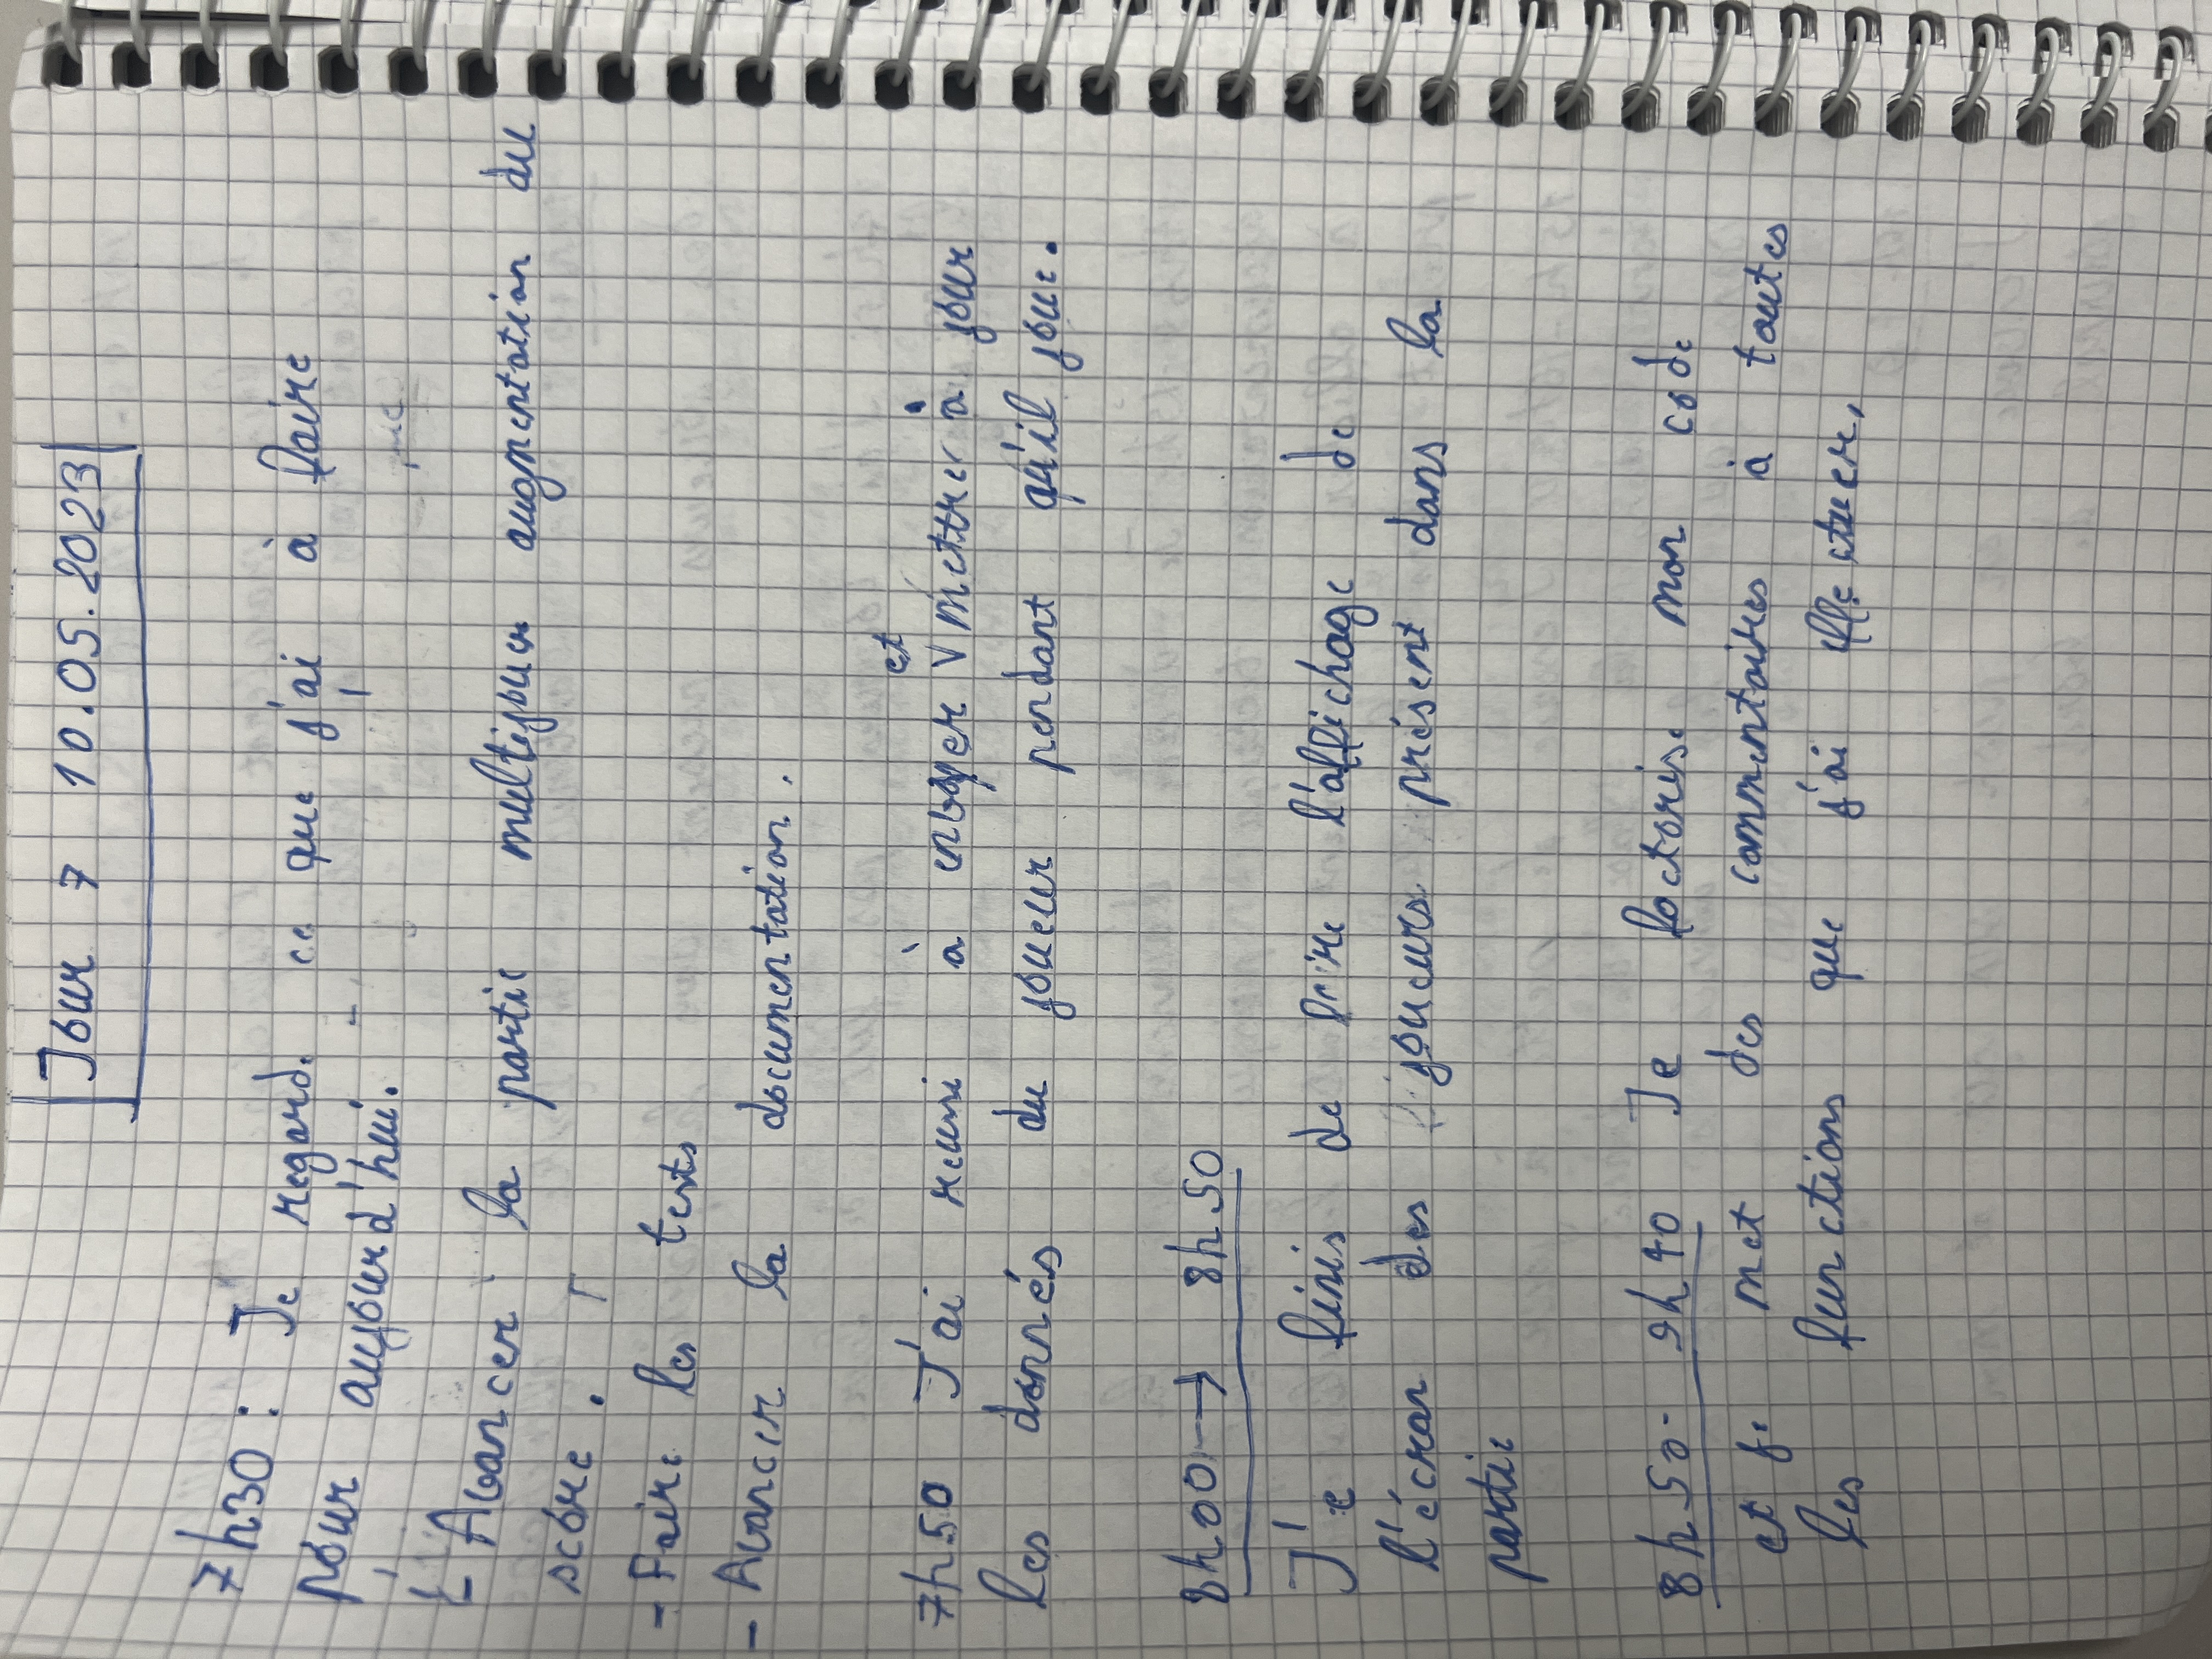 Jour 7 10.05.2023
7h30 : Je regarde ce que j'ai à faire
pour aujourd'hui.
- Avancer la partie multijoueur augmentation du
score.
- Faire les tests
- Avancer la documentation.
7h50 J'ai reussi à envoyer et mettre à jour
les donnés du joueur pendant qu'il joue.
8h00 → 8h50
J'e finis de faire l'affichage de
l'écran des joueurs présent dans la
partie
8h50 - 9h40 Je factorise mon code
et je met des commentaires à toutes
les functions que j'ai effectuer.